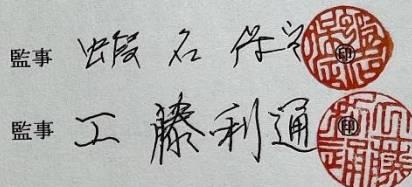 監事 蝦名 印
監事 工藤利通 印